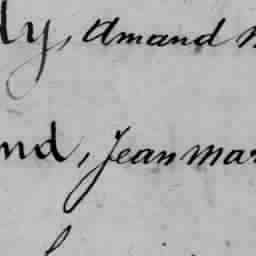 ly, Amand
nd, Jean Mar